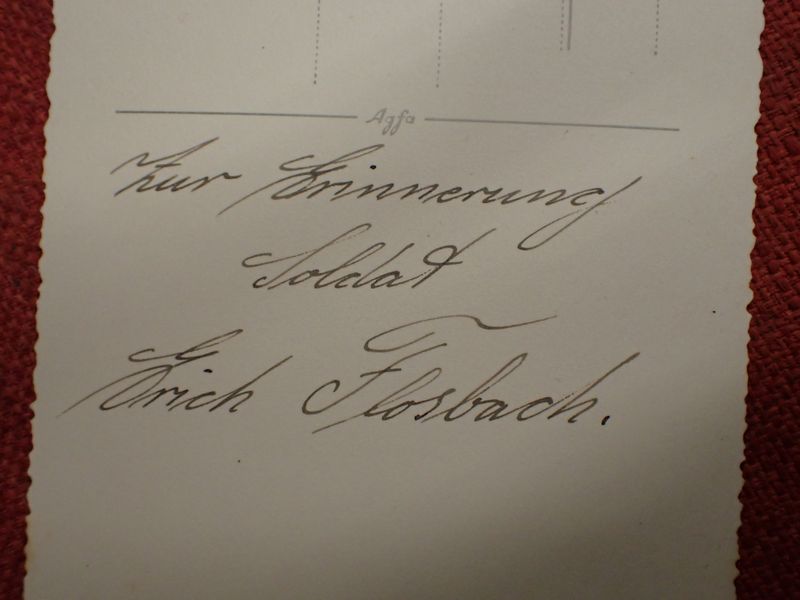 Agfa
Zur Erinnerung
Soldat
Erich Flosbach.